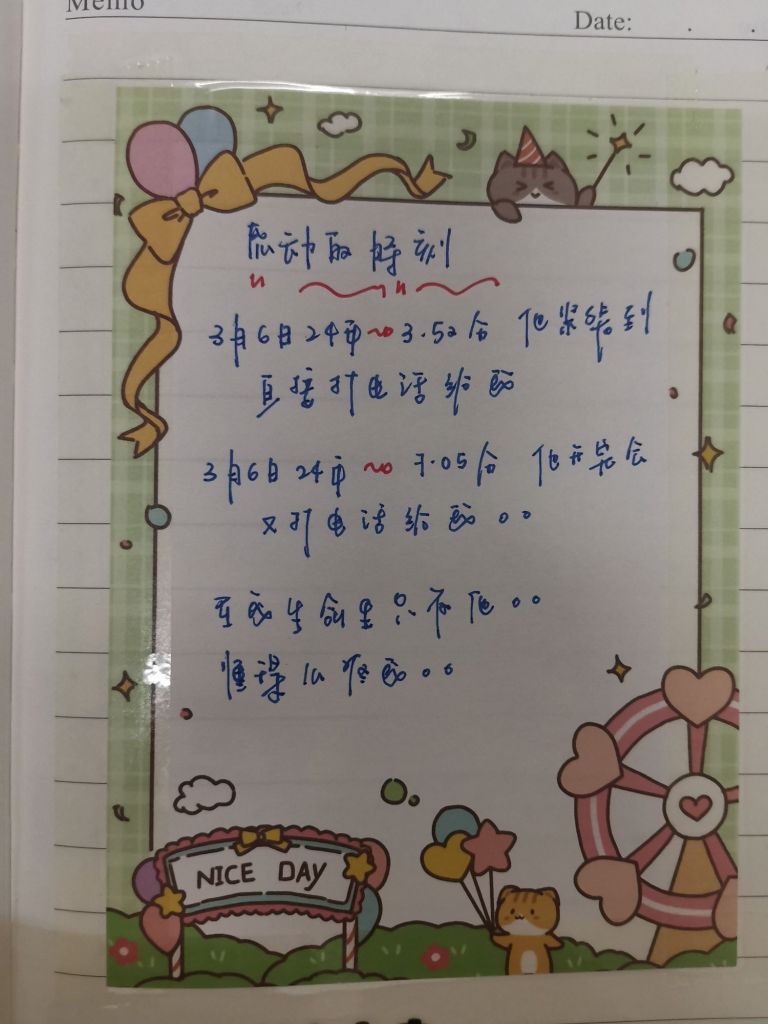 Memo
Date: . .
感动的时刻
3月6日24市~3.52分 他紧张到
直接打电话给我
3月6日24市~7.05分 他开完会
又打电话给我。。
在我生命里只有他。。
懂得心疼我。。
NICE DAY